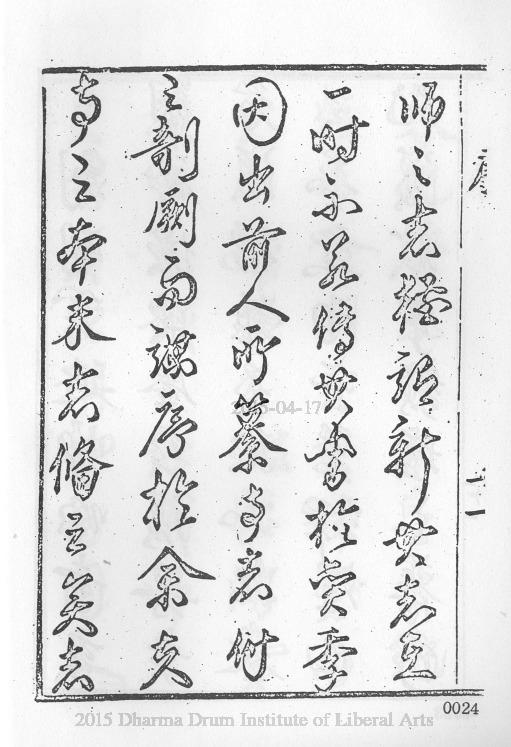 序
十一
師之志槯誼新其志在
一時不若傳其書於奕季
因出前人所纂寺志付
之剞劂而謀序於余夫
寺之本末志僃之矣志
2015-04-17
0024
2015 Dharma Drum Institute of Liberal Arts